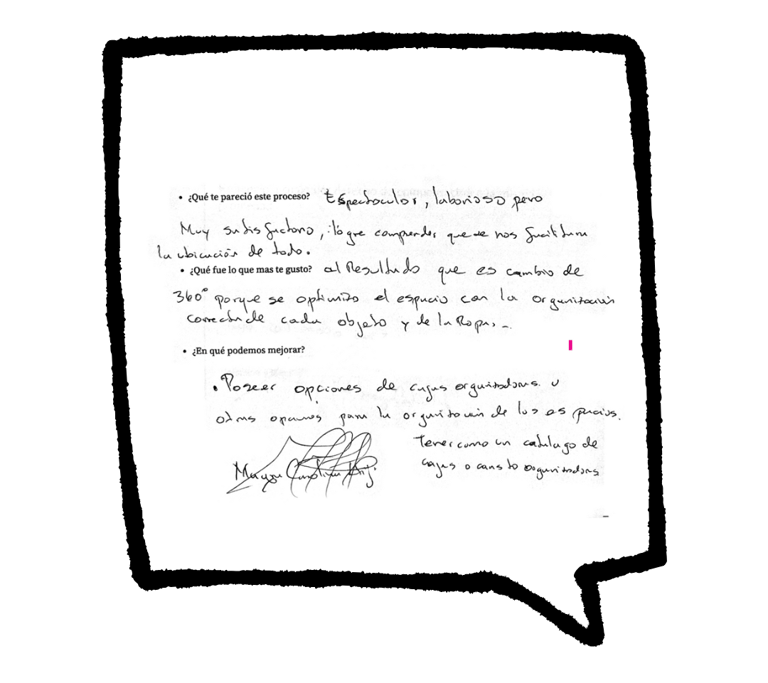 • ¿Qué te pareció este proceso? Espectacular, laborioso pero
Muy satisfactorio, logre comprender que se nos facilitara
la ubicación de todo.
• ¿Qué fue lo que mas te gusto? al Resultado que es cambio de
360° porque se optimizo el espacio con la organización
correcta de cada objeto y de la Ropa.
• ¿En qué podemos mejorar?
• Poseer opciones de cajas organizadoras u
otras opciones para la organización de los espacios.
Tener como un catalago de
cajas o canasto organizadoras